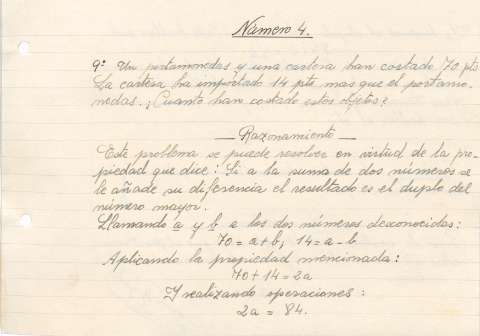 Número 4.
9º Un portamonedas y una cartera han costado 70 pts
La cartera ha importado 14 pts mas que el portamo-
nedas. ¿Cuanto han costado estos objetos?
— Razonamiento —
Este problema se puede resolver en virtud de la pro-
piedad que dice: Si a la suma de dos numeros se
le añade su diferencia el resultado es el duplo del
número mayor.
Llamando a y b a los dos números desconocidos:
70 = a + b; 14 = a - b
Aplicando la propiedad mencionada:
70 + 14 = 2a
Y realizando operaciones:
2a = 84.